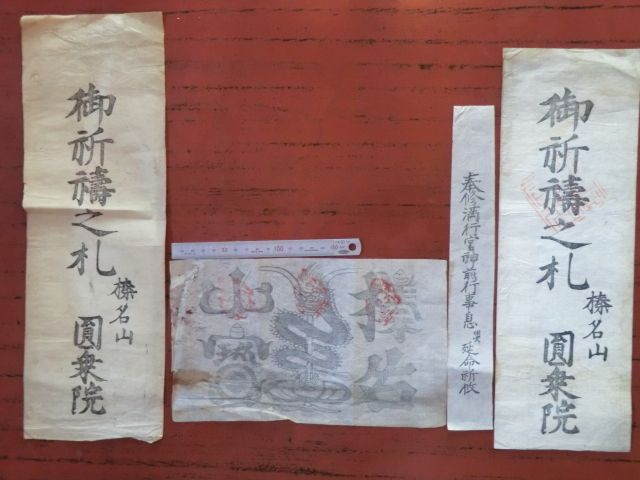 御祈禱之札
榛名山
圓乗院
奉修満行宮神前行事息災延命祈攸
榛名
山
御祈禱之札
榛名山
圓乗院